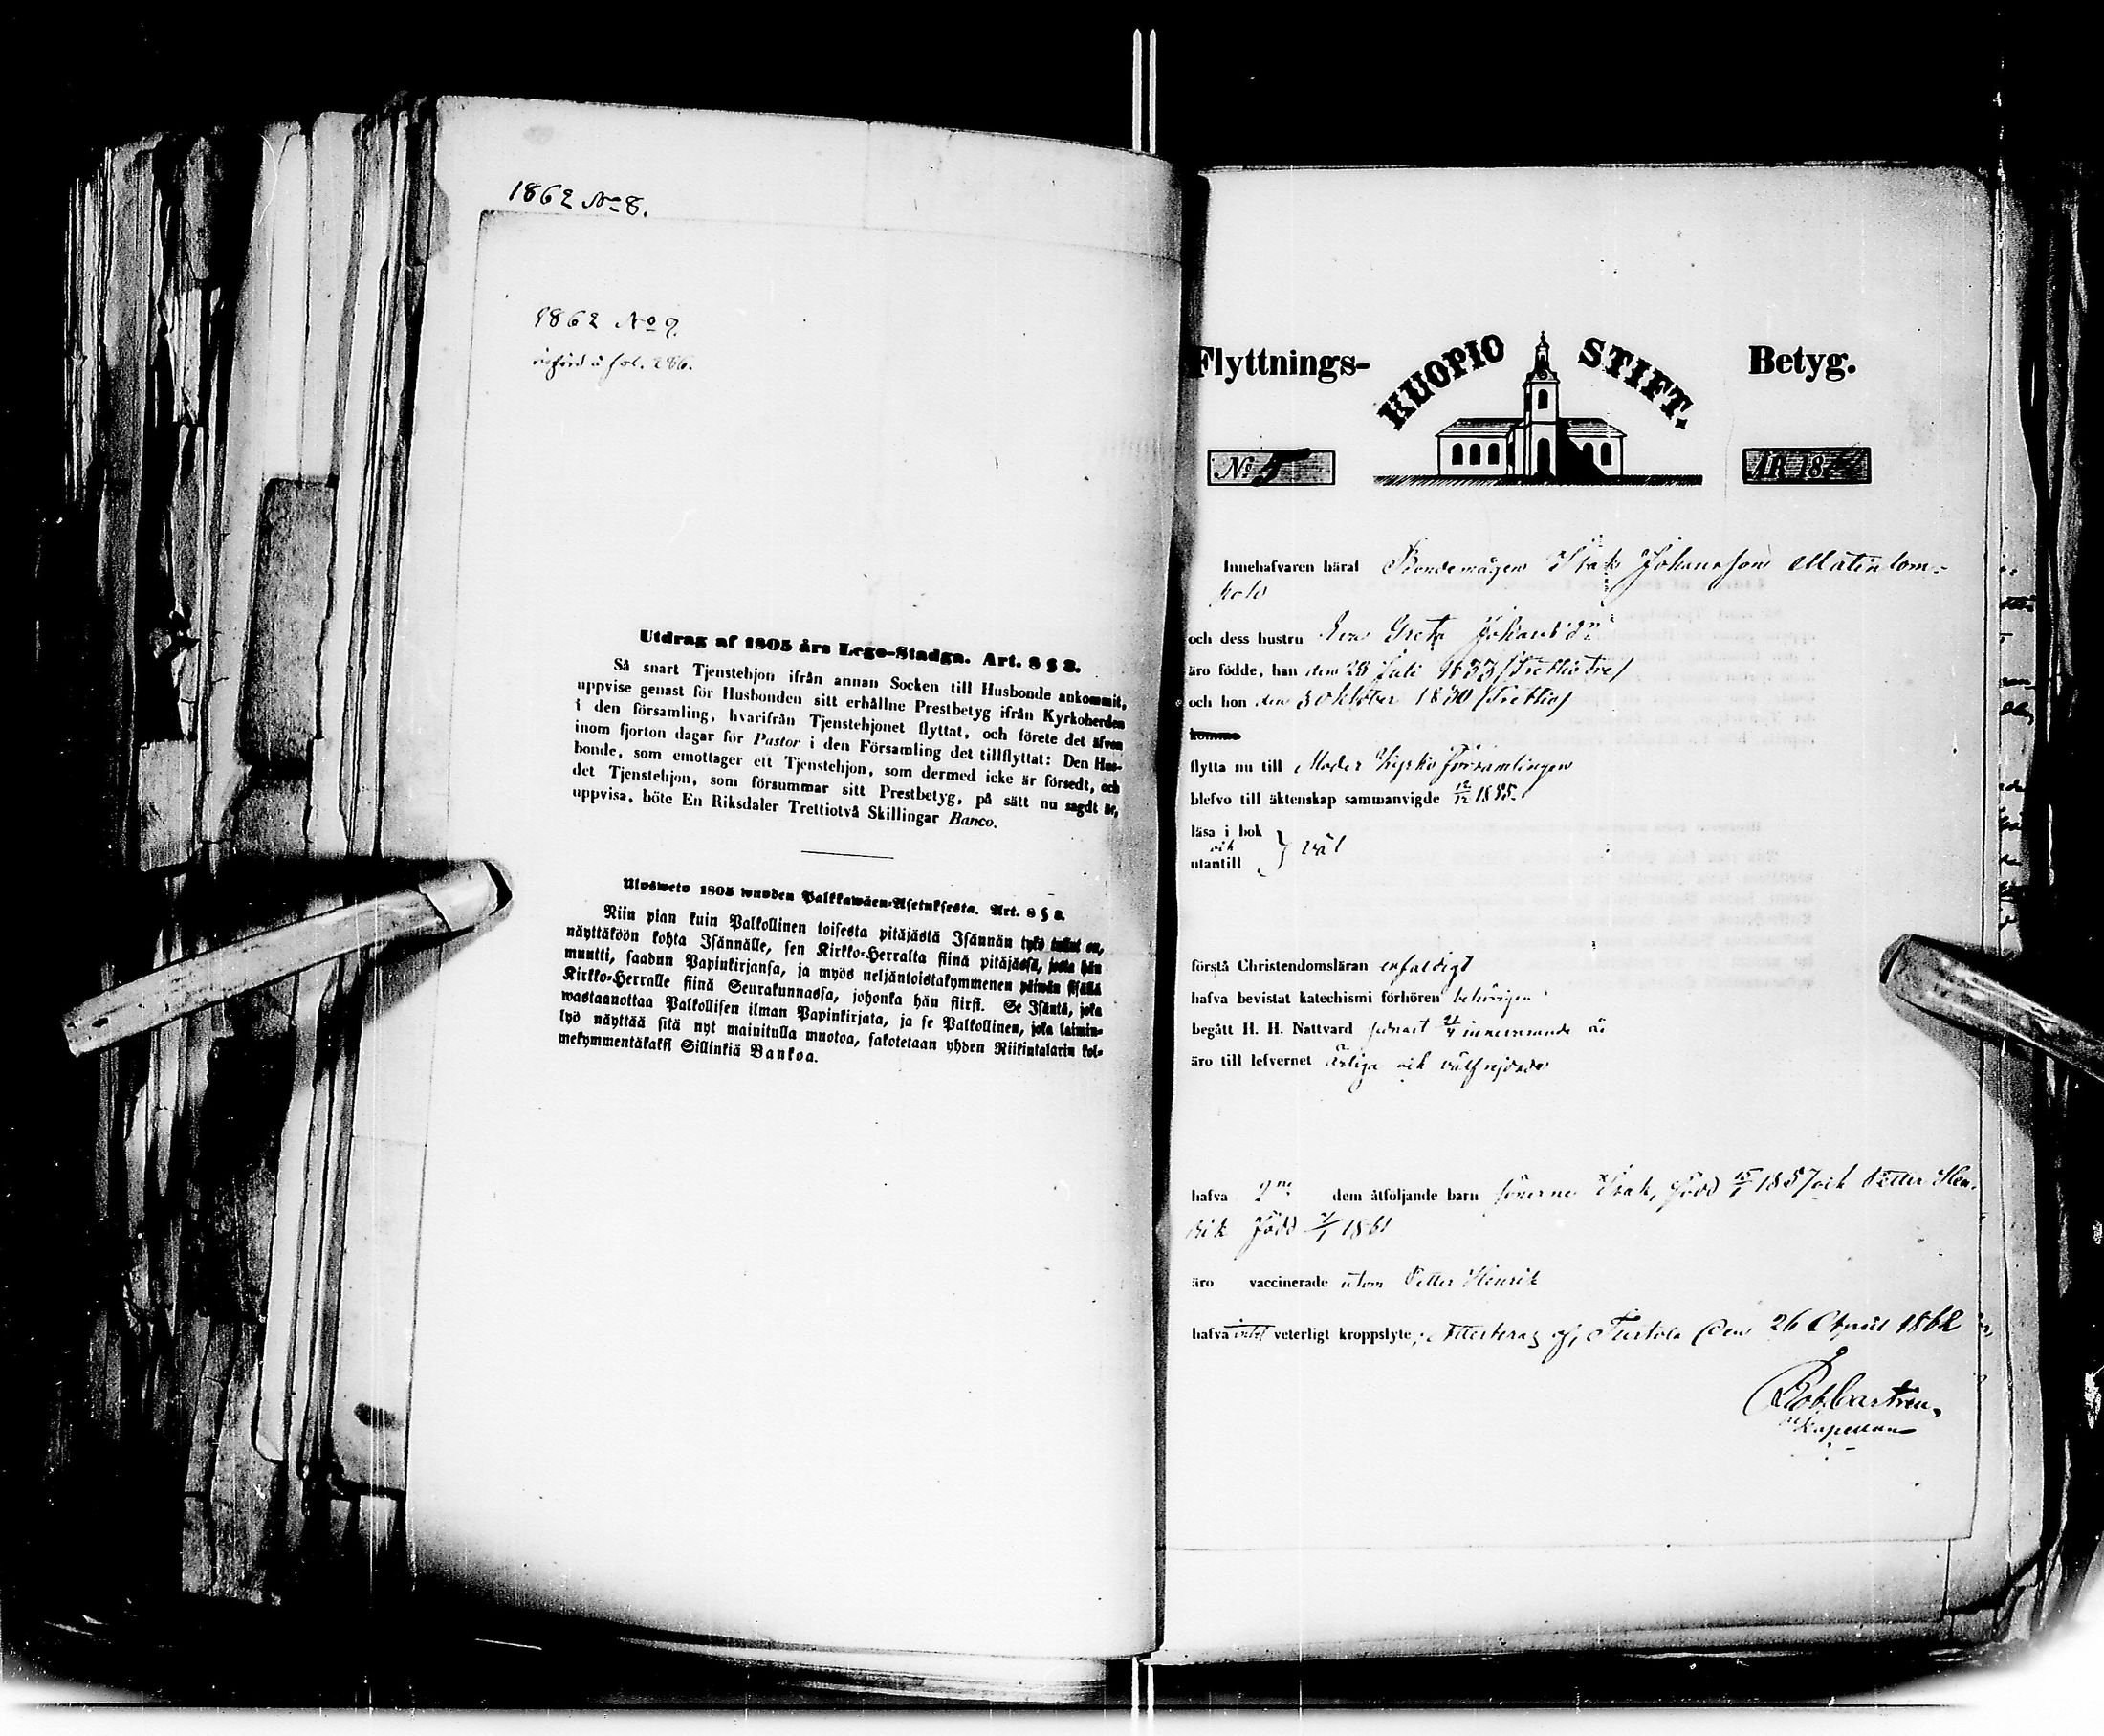 1862 No 8.
1862 No 9.
införd å fol. 286.
Utdrag af 1805 års Lego-Stadga. Art. 8 § 3.
Så snart Tjenstehjon ifrån annan Socken till Husbonde ankommit,
uppvise genast för Husbonden sitt erhållne Prestbetyg ifrån Kyrkoherden
i den församling, hvarifrån Tjenstehjonet flyttat, och förete det äfven
inom fjorton dagar för Pastor i den Församling det tillflyttat: Den Hus-
bonde, som emottager ett Tjenstehjon, som dermed icke är försedt, och
det Tjenstehjon, som försummar sitt Prestbetyg, på sätt nu sagdt är,
uppvisa, böte En Riksdaler Trettiotvå Skillingar Banco.
Ulosweto 1805 wuoden Palkkawäen-Asetuksesta. Art. 8 § 3.
Niin pian kuin Palkollinen toisesta pitäjästä Isännän tykö tullut on,
näyttäköön kohta Isännälle, sen Kirkko-Herralta siinä pitäjässä, josta hän
muutti, saadun Papinkirjansa, ja myös neljäntoistakymmenen päiwän sisällä
Kirkko-Herralle siinä Seurakunnassa, johonka hän siirsi. Se Isäntä, joka
wastaanottaa Palkollisen ilman Papinkirjata, ja se Palkollinen, joka laimin-
lyö näyttää sitä nyt mainitulla muotoa, sakotetaan yhden Riikintalarin kol-
mekymmentäkaksi Sillinkiä Bankoa.
Flyttnings- KUOPIO STIFT. Betyg.
No 5 ÅR 18
Innehafvaren häraf Bondemågen Isak Johansson Matinlom-
polo
och dess hustru Eva Greta Johansd:r
äro födde, han den 28 Juli 1833 (Trettiotre)
och hon den 3 Oktober 1830 (Trettio)
komma
flytta nu till Moder Kyrko församlingen
blefvo till äktenskap sammanvigde 12/12 1855.
läsa i bok
och } väl
utantill
förstå Christendomsläran enfaldigt
hafva bevistat katechismi förhören behörigen
begått H. H. Nattvard sednast 21/4 innevarande år
äro till lefvernet ärliga och välfrejdade
hafva 2ne dem åtföljande barn sönerne Isak, född 15/1 1857 och Petter Hen-
rik född 2/1 1861
äro vaccinerade utom Petter Henrik
hafva intet veterligt kroppslyte; Attesteras af, Turtola den 26 April 1862
Rob. Castrén,
Kapellan